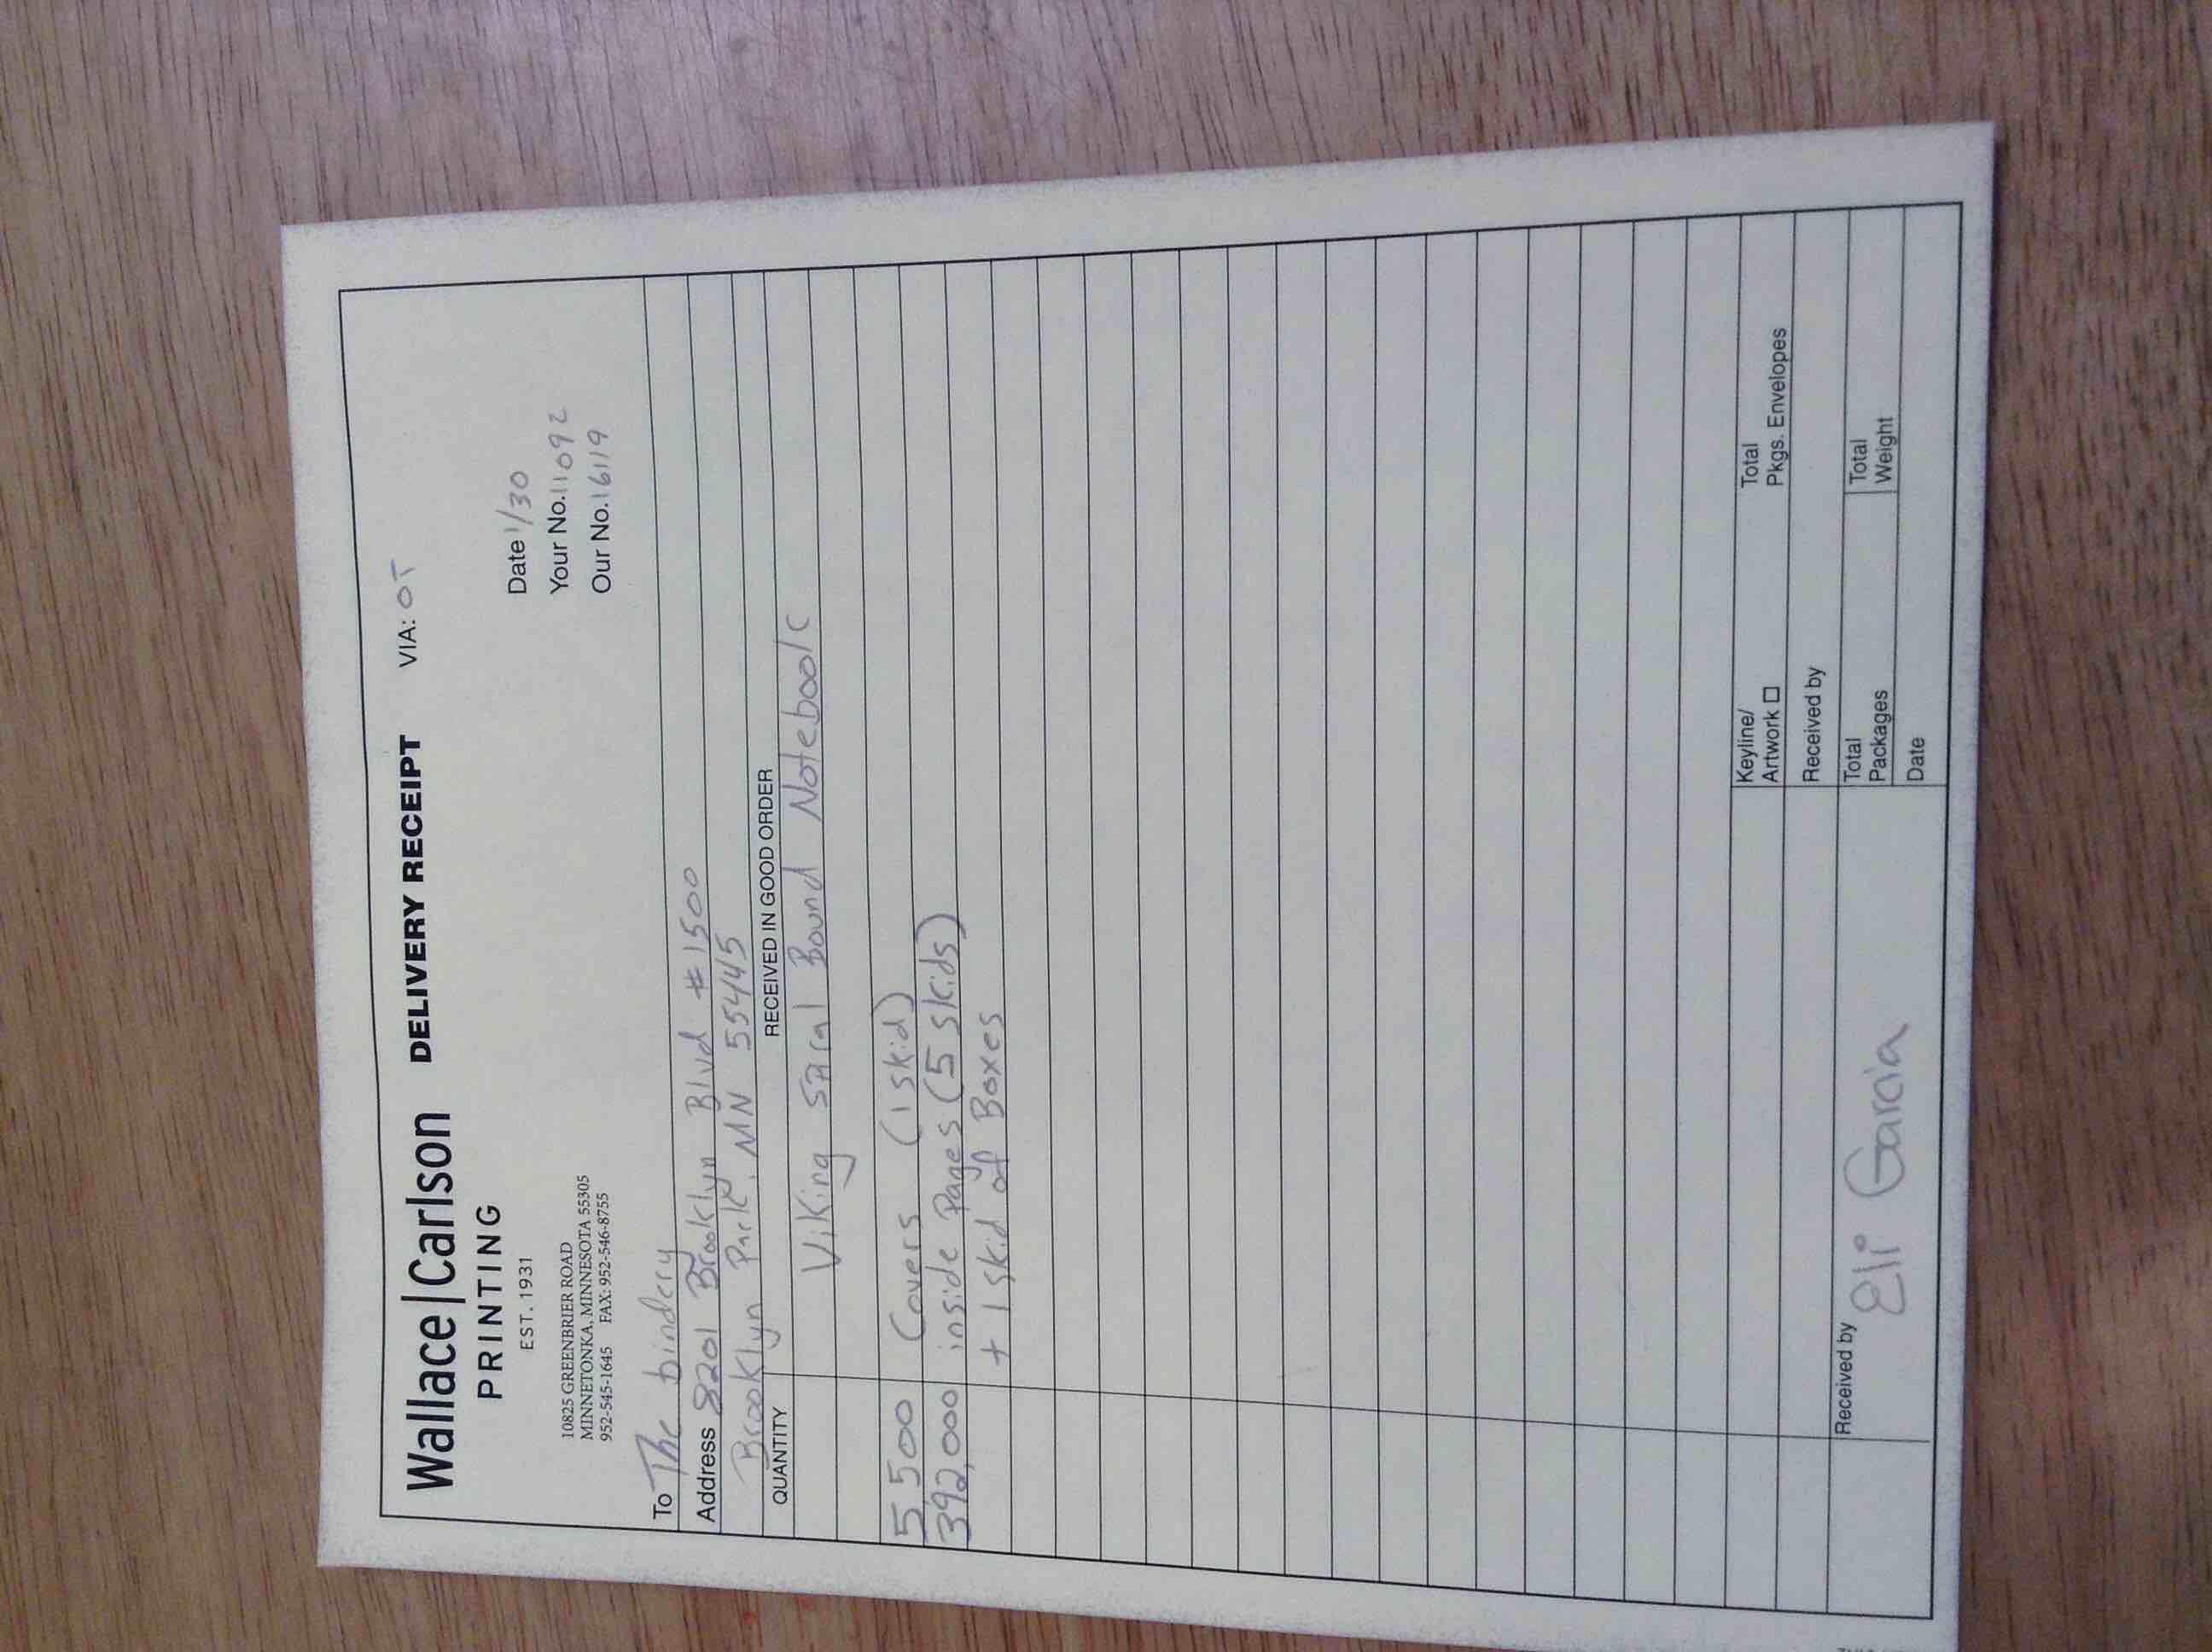 Wallace|Carlson DELIVERY RECEIPT VIA: OT
PRINTING
EST. 1931
Date 1/30
Your No. 11092
Our No. 16119
10825 GREENBRIER ROAD
MINNETONKA, MINNESOTA 55305
952-545-1645 FAX: 952-546-8755
To The bindery
Address 8201 Brooklyn Blvd #1500
Brooklyn Park, MN 55445
QUANTITY RECEIVED IN GOOD ORDER
Viking Bound Notebook
5,500 Covers (1 skid)
392,000 inside Pages (5 skids)
+ 1 skid of Boxes
Keyline/ Total
Artwork □ Pkgs. Envelopes
Received by
Total Total
Packages Weight
Date
Received by
Eli Garcia